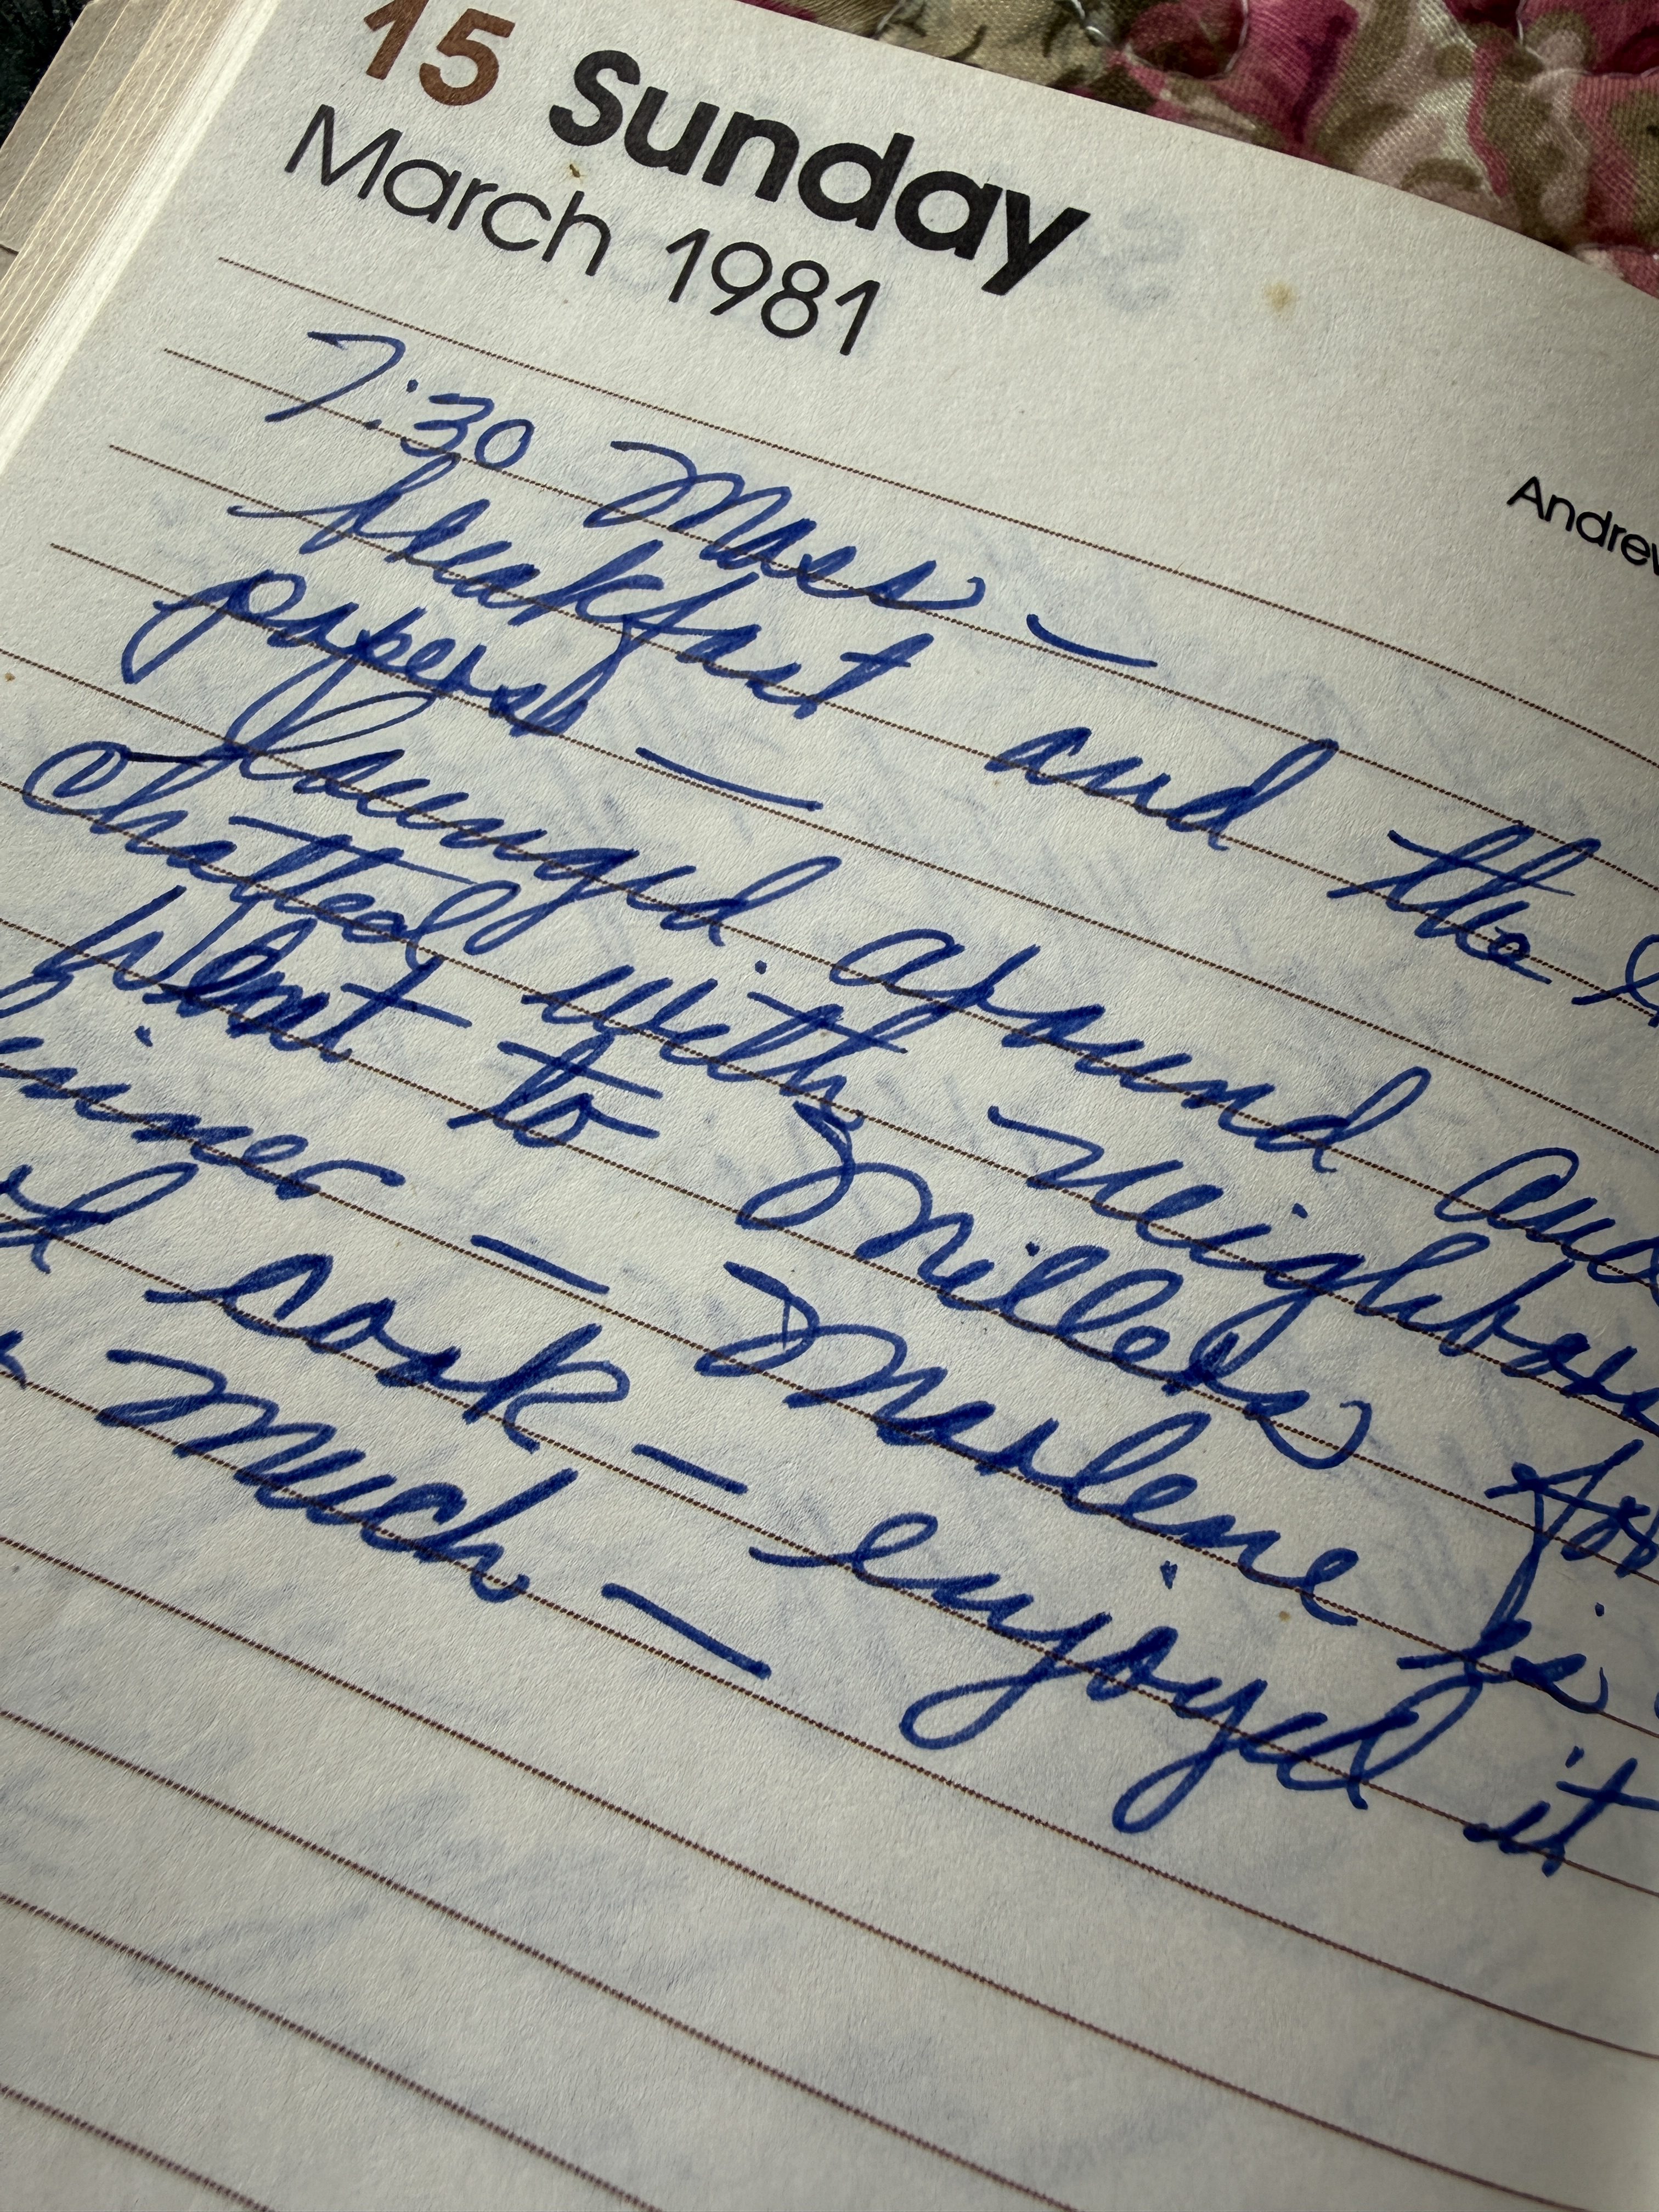 15 Sunday
March 1981
Andrew
7:30 Mass —
breakfast and the
papers —
Lounged around and
chatted with neighbors
Went to Milleds for
dinner — Marlene is
cook — enjoyed it
much —